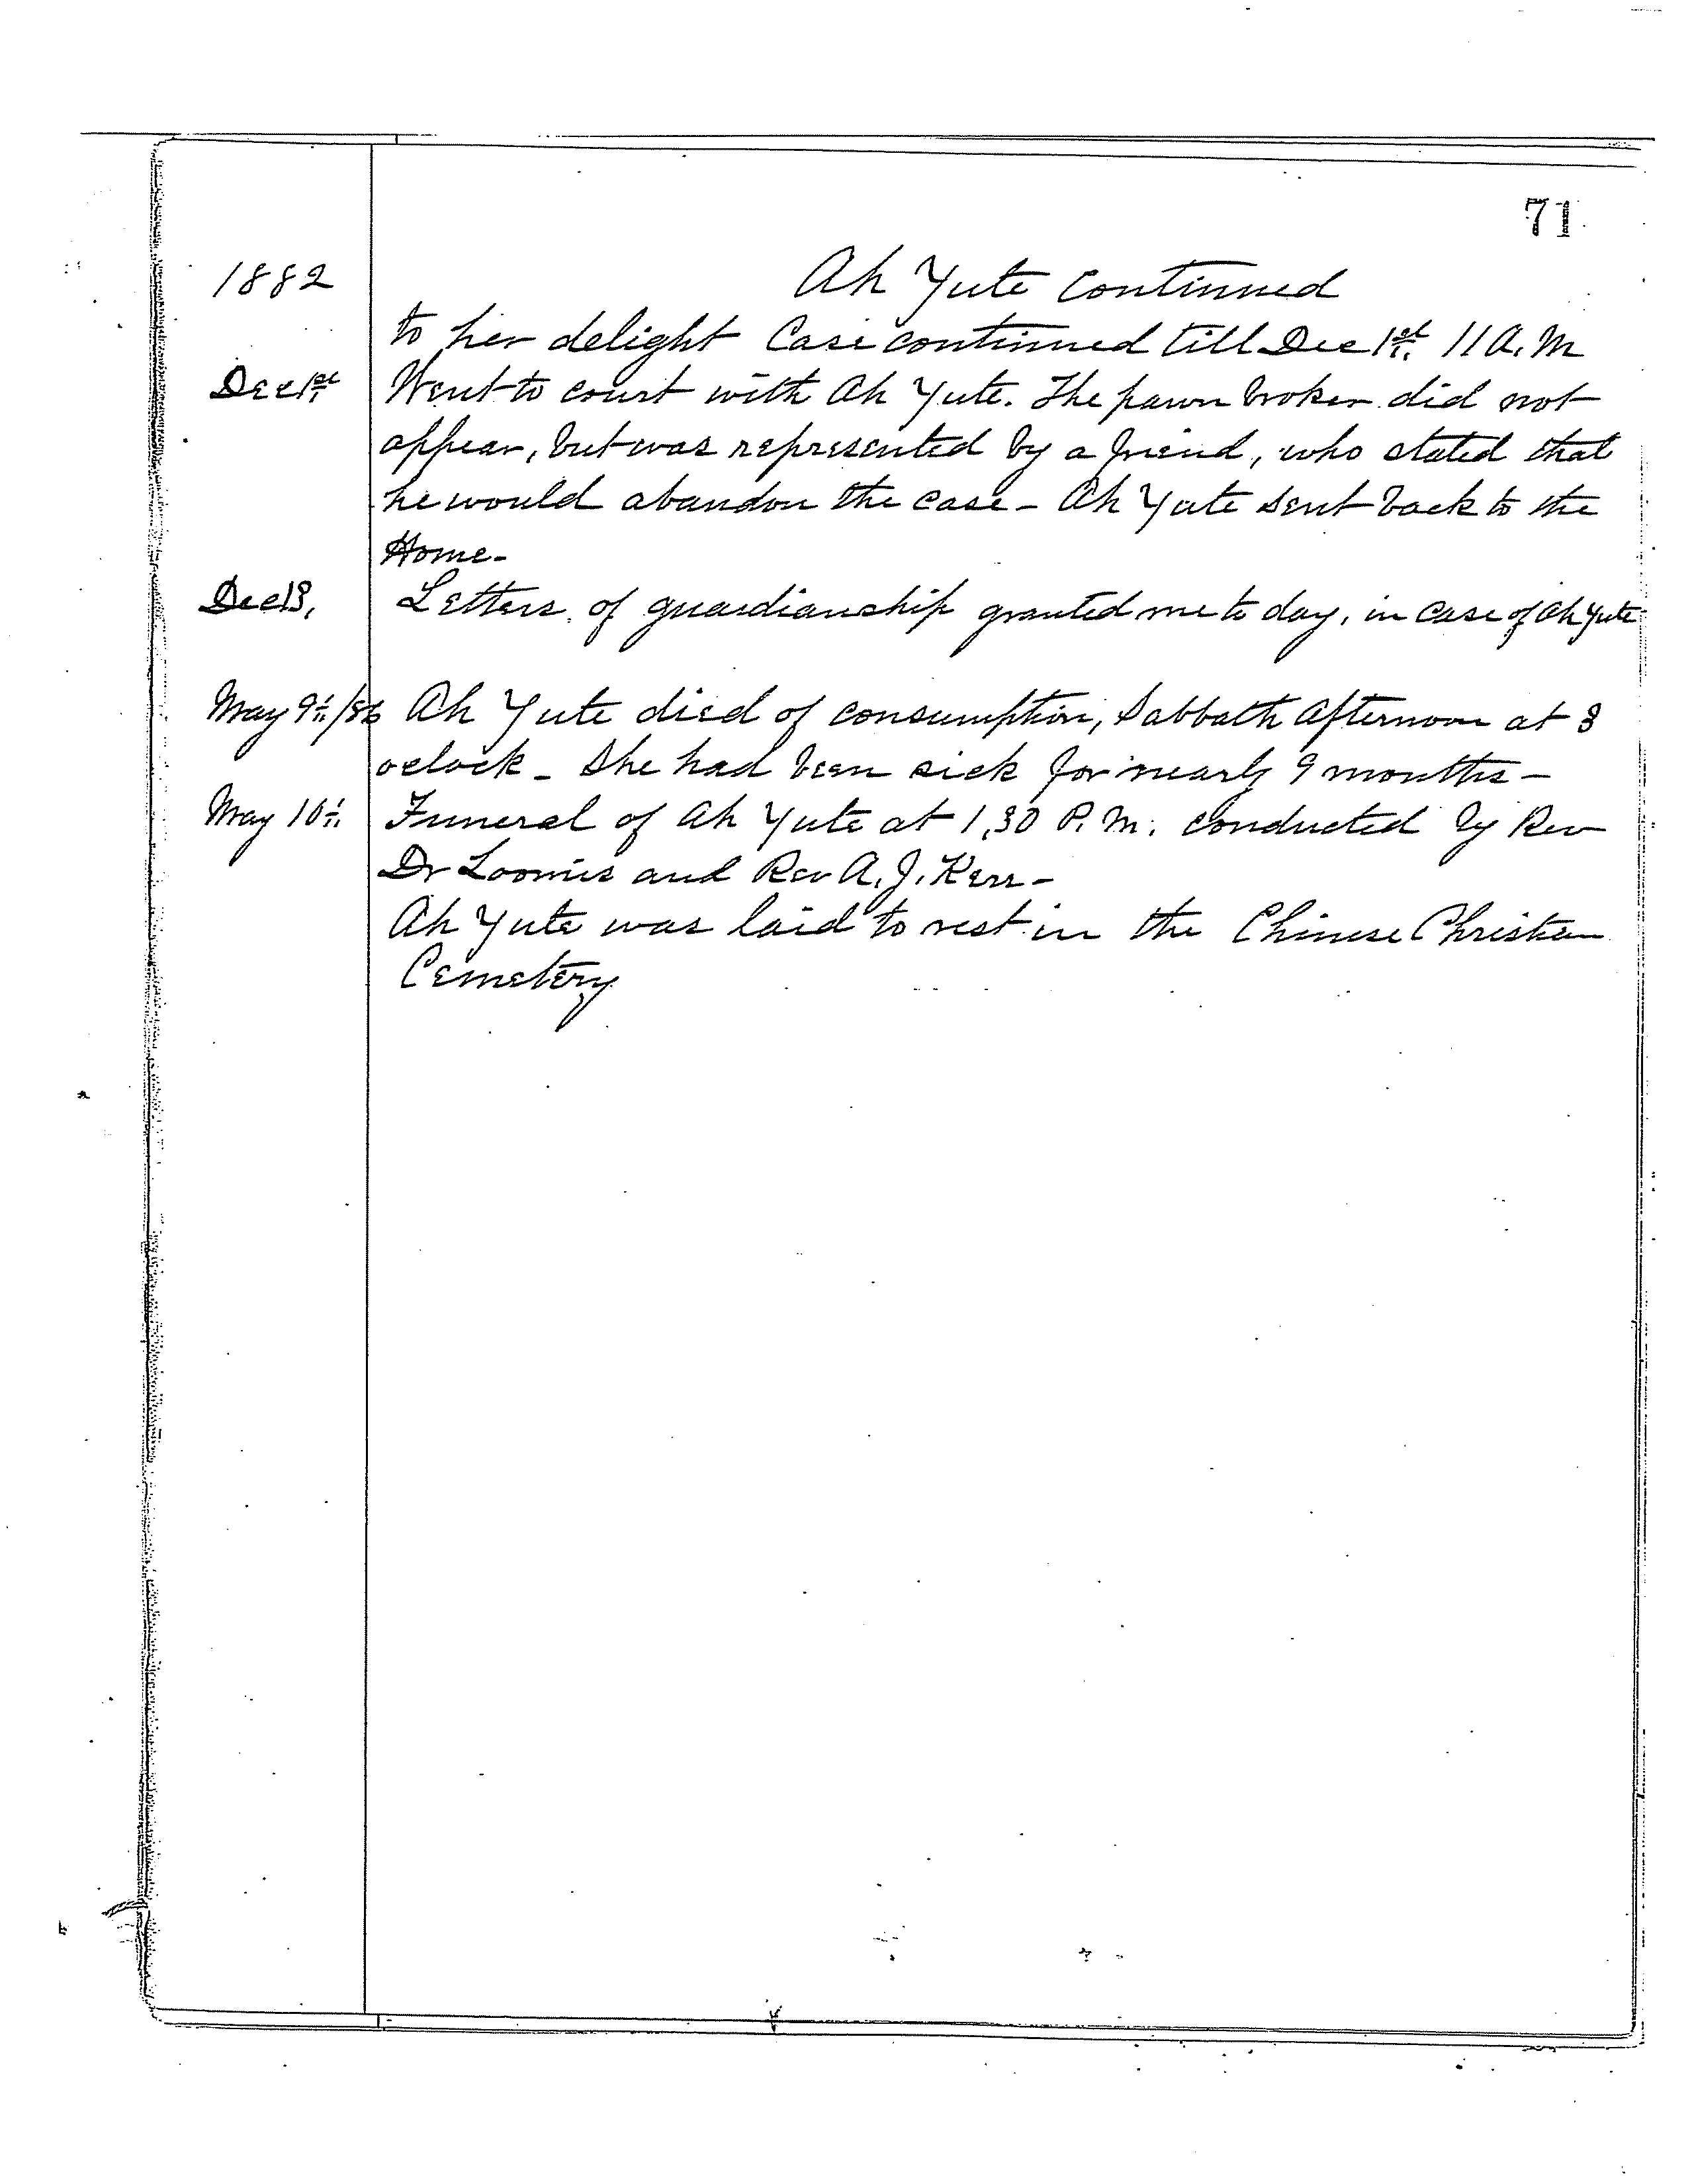 71
1882 Ah Yute continued
to her delight Case continued till Dec 1st. 11 A.M
Dec 1st Went to court with Ah Yute. The pawn broker did not
appear, but was represented by a friend, who stated that
he would abandon the case - Ah Yute sent back to the
Home-
Dec 13, Letters of guardianship granted me to day, in case of Ah Yute
May 9th/86 Ah Yute died of consumption, Sabbath afternoon at 3
oclock - She had been sick for nearly 9 months -
May 10th Funeral of Ah Yute at 1,30 P.M. conducted by Rev
Dr Loomis and Rev A. J. Kerr -
Ah Yute was laid to rest in the Chinese Christian
Cemetery